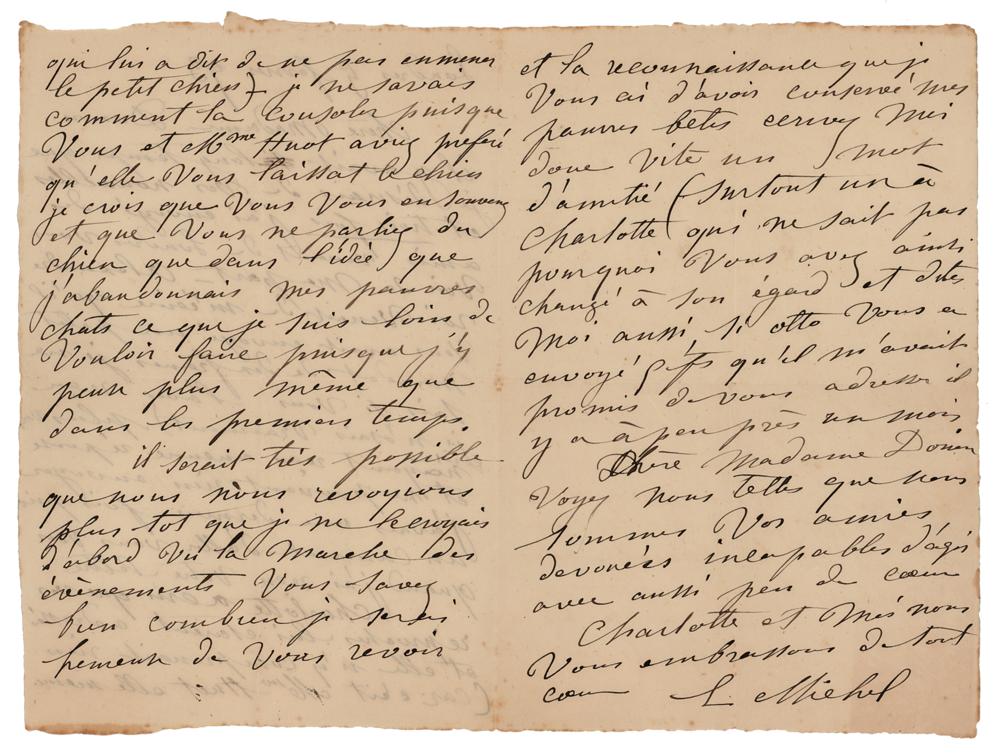 qui lui a dit de ne pas emmener
le petit chien) je ne savais
comment la consoler puisque
Vous et Mme Huot aviez préféré
qu'elle Vous laissat le chien
je crois que Vous Vous en souvenez
et que Vous ne parliez du
chien que dans l'idée que
j'abandonnais mes pauvres
chats ce que je suis loin de
Vouloir faire puisque j'y
peux plus même que
dans les premiers temps.
il serait très possible
que nous nous revoyions
plus tot que je ne le croyais
d'abord Vu la Marche des
évènements Vous savez
bien combien je serais
heureux de Vous revoir
et la reconnaissance que je
Vous ai d'avoir conservé mes
pauvres bêtes ecrivez Moi
donc vite un mot
d'amitié (surtout un à
Charlotte qui ne sait pas
pourquoi Vous avez ainsi
changé à son égard) et dites
Moi aussi si otto Vous a
envoyé 5 fs qu'il m'avait
promis de vous adresser il
y a à peu près un mois
Chère Madame
Voyez nous telles que nous
sommes Vos amies
devouées incapables d'agir
avec aussi peu de cœur
Charlotte et Moi nous
Vous embrassons de tout
cœur L Michel